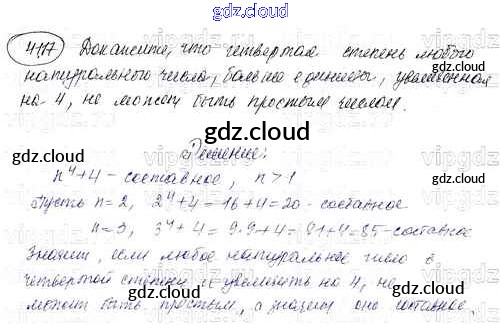 gdz.cloud
4117 Докажите, что четвертая степень любого
натурального числа, больше единицы, увеличенная
на 4, не может быть простым числом.
gdz.cloud
Решение:
n⁴+4 – составное, n>1
Пусть n=2, 2⁴+4=16+4=20 - составное
n=3, 3⁴+4=9·9+4=81+4=85 - составное
Значит, если любое натуральное число в
четвертой степени и увеличить на 4, не
может быть простым, а значит оно составное.
gdz.cloud